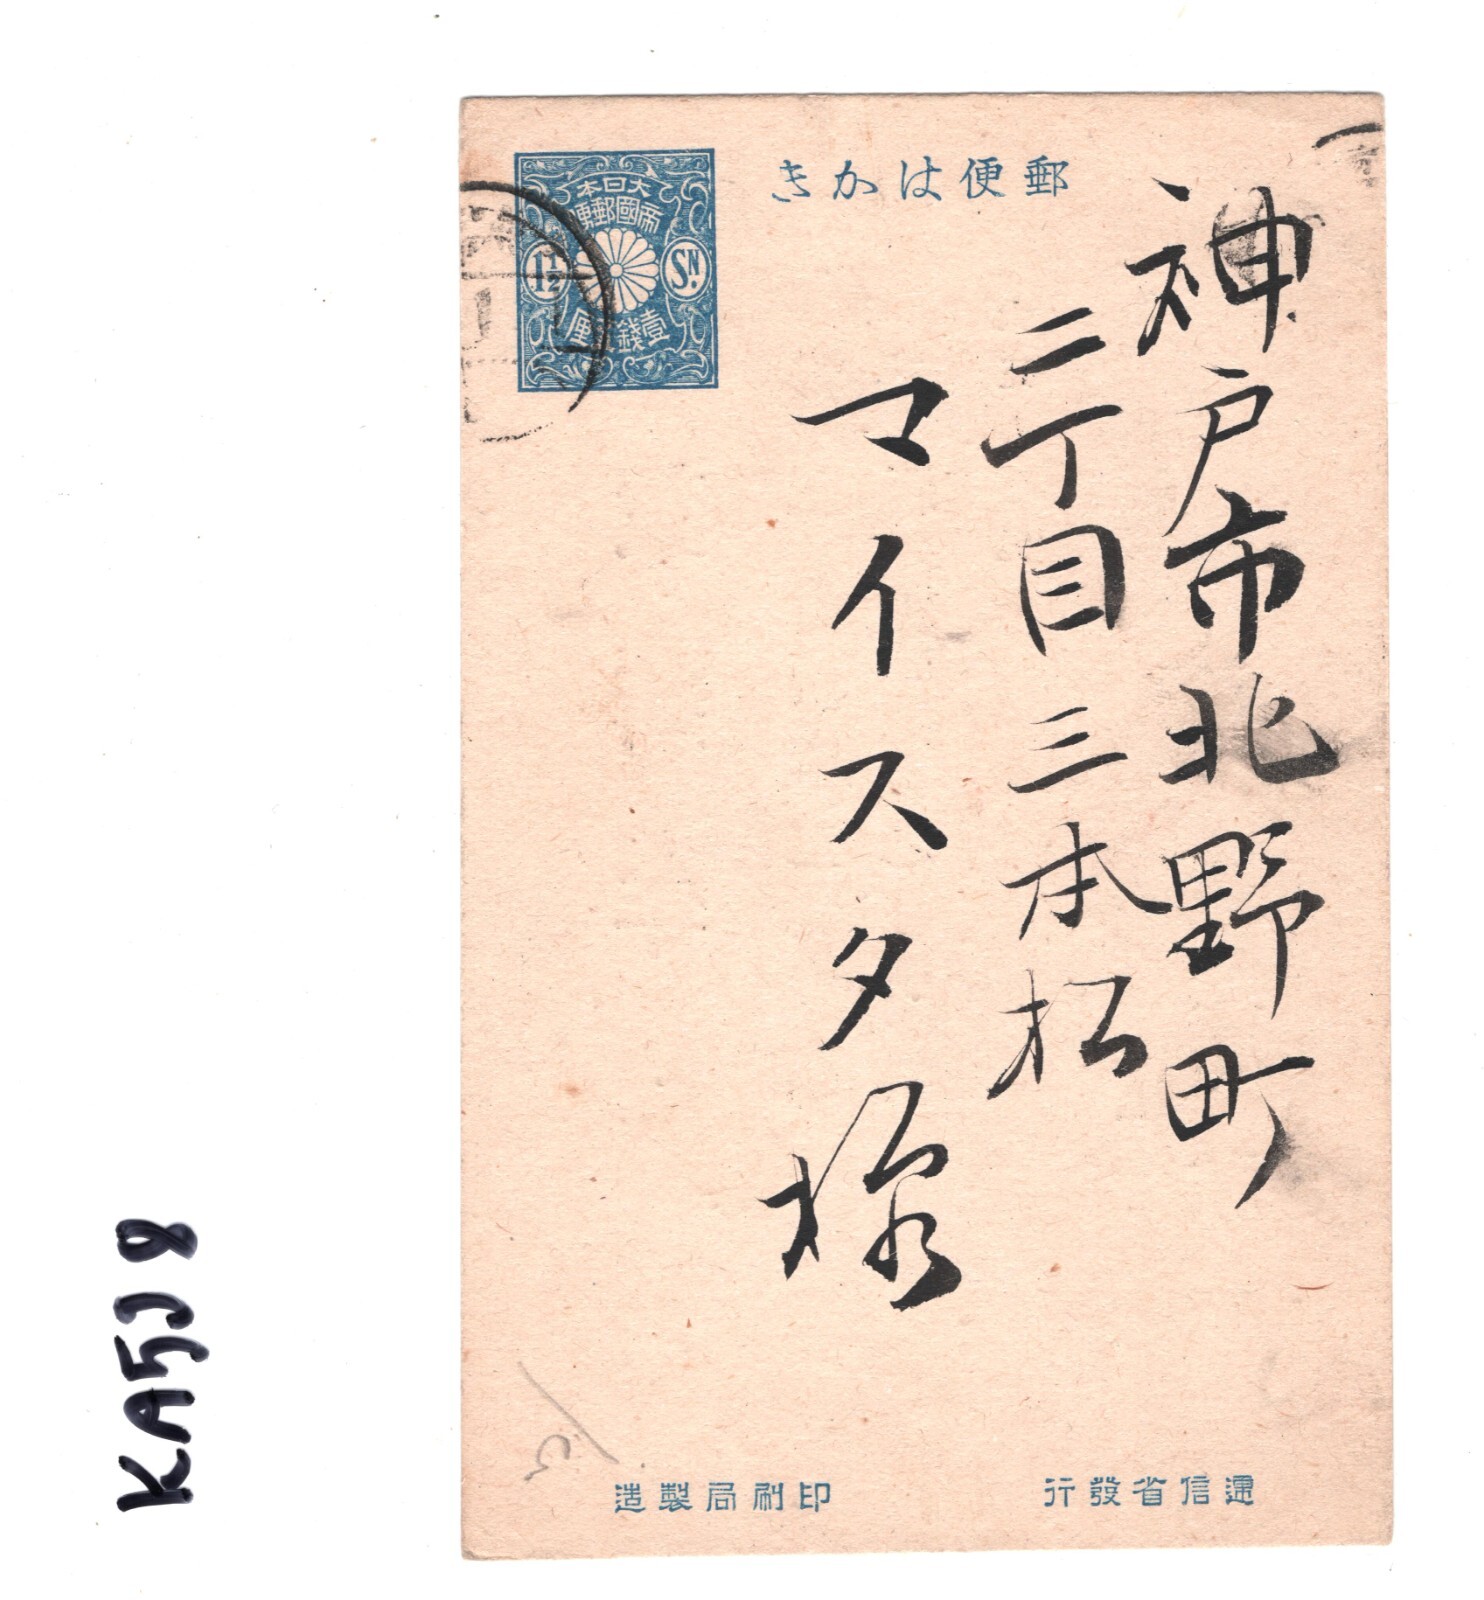 郵便はかき
大日本
帝國郵便
1½ SN.
壹錢五厘
神戸市北野町
二丁目三本松
マイスタ様
逓信省發行
印刷局製造
KA5J8